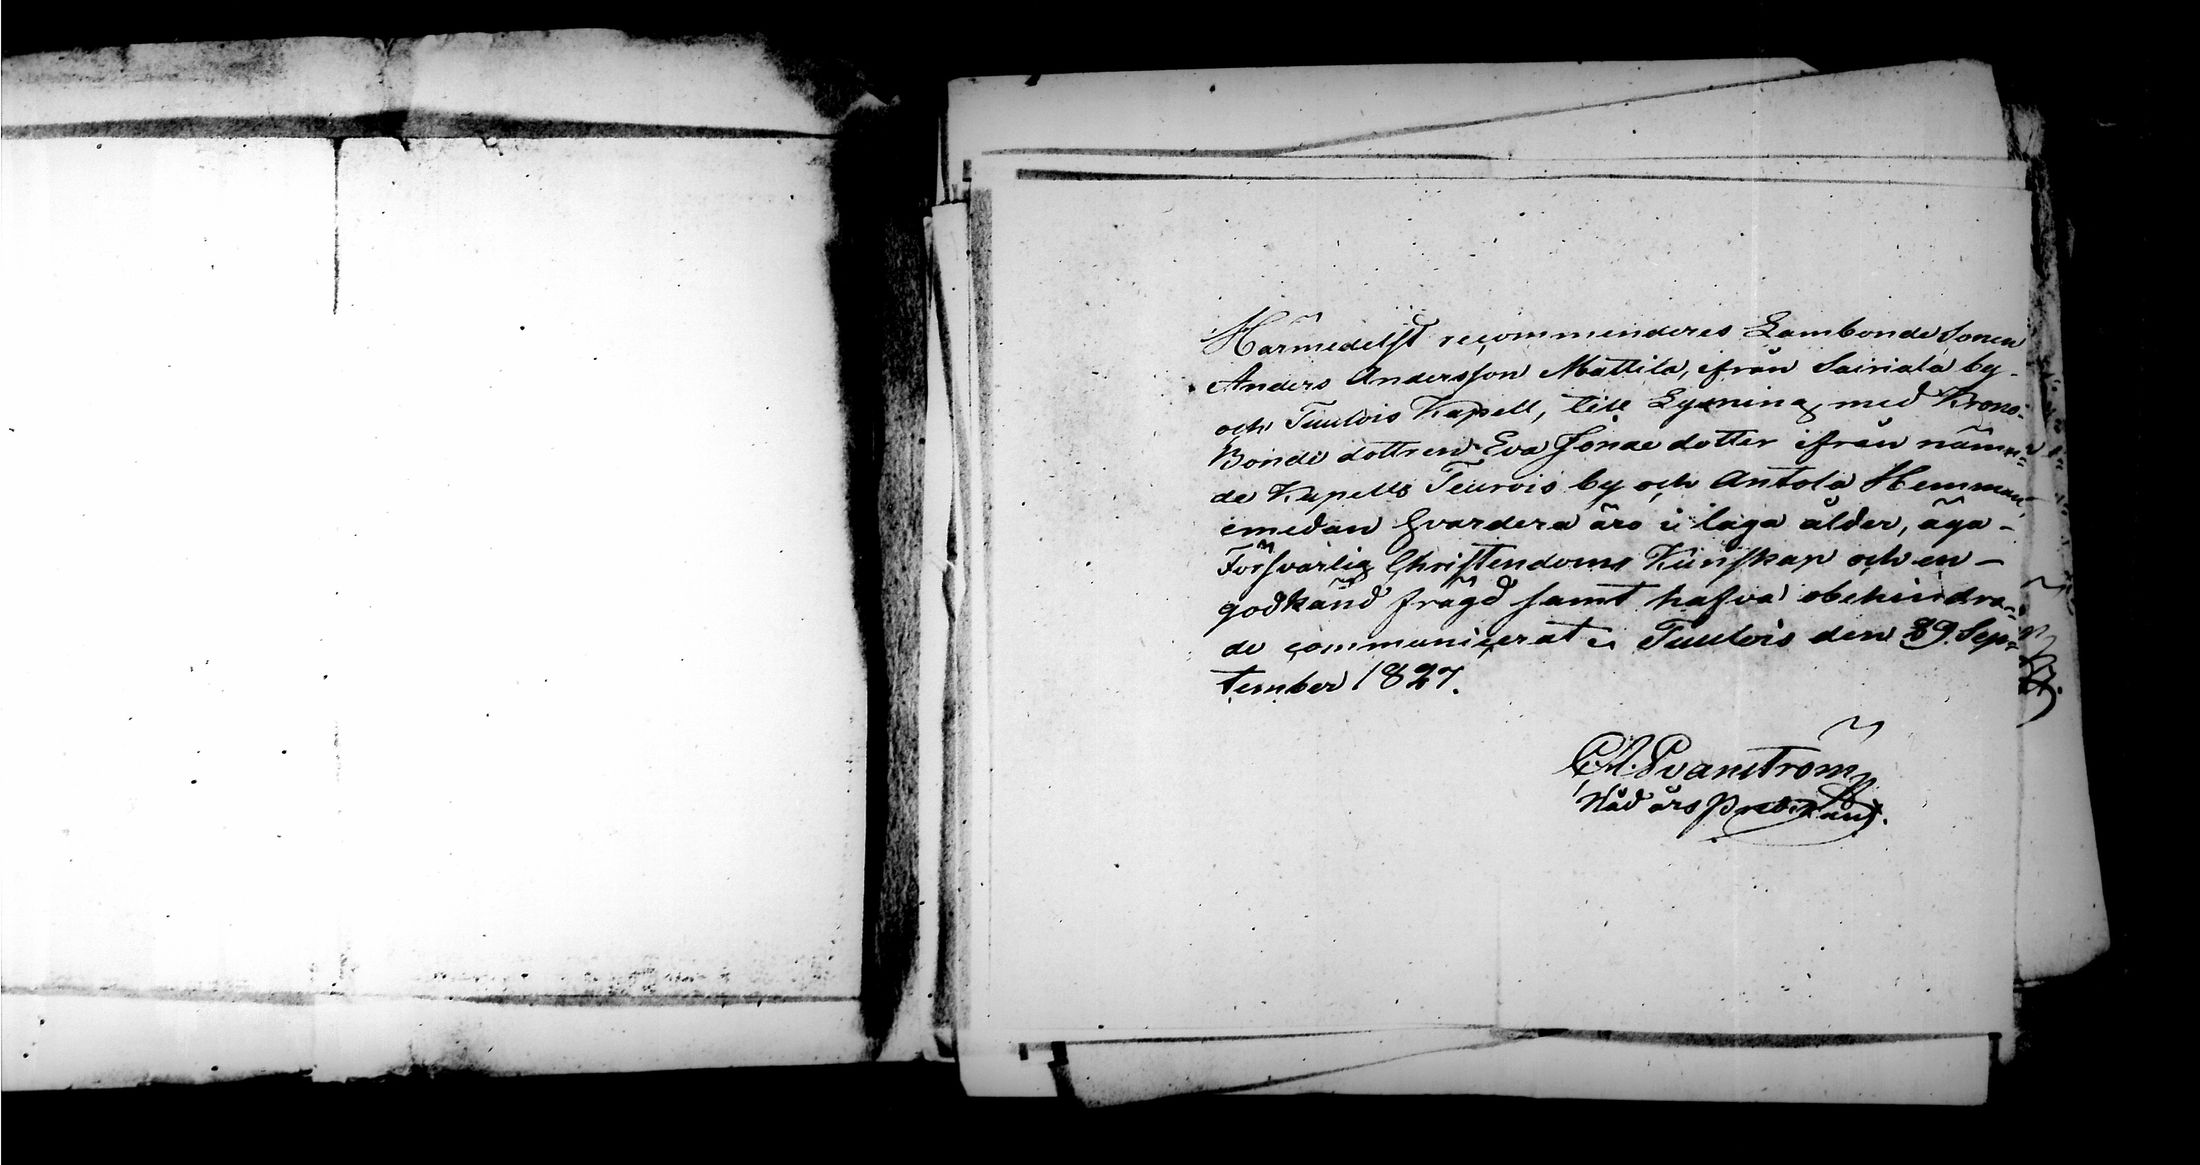 Härmedelst recommenderes Lambonde Sonen
Anders Andersson Mattila, ifrån Sairiala by
och Tuulois Kapell, till Lysning med Krono-
Bonde dottren Eva Jonae dotter ifrån nämn-
de Kapells Teurois by och Antola Hemman,
emedan hvardera äro i laga ålder, äga
Försvarlig Christendoms Kunskap och en
godkänd frägd samt hafva obehindra-
de communicerat. Tuulois den 29. Sep-
tember 1827.
C. A. Svanström
Nådårs Predikant.